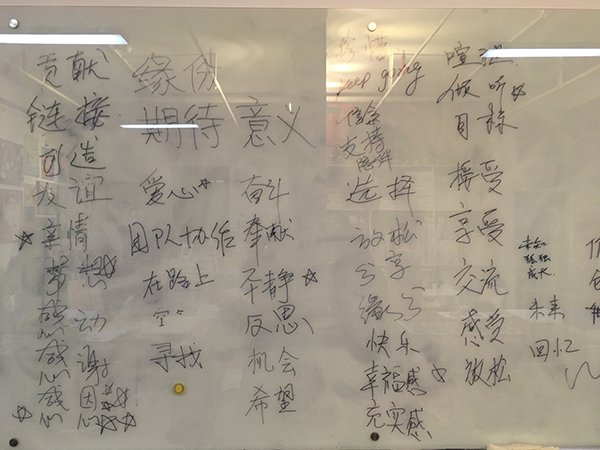 贡献
链接
创造
友谊
亲情
梦想
感动
感谢
感恩
缘份
期待 意义
爱心
团队协作
在路上
寻找
奋斗
奉献
平静
反思
机会
希望
珍惜
keep going
信念
支持
陪伴
选择
放松
分享
缘分
快乐
幸福感
充实感
倾听
目标
接受
享受
交流
感受
放松
成长
未来
回忆